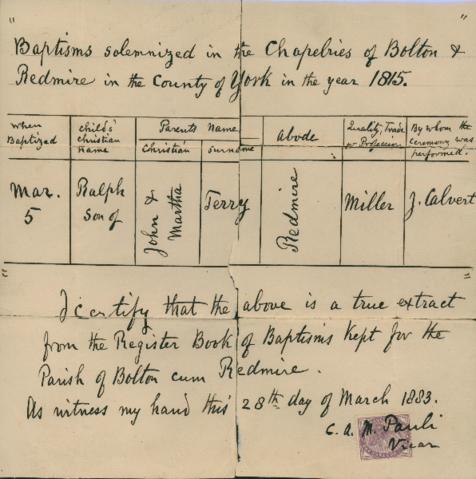 "Baptisms solemnized in the Chapelries of Bolton &
Redmire in the County of York in the year 1815."
When Baptized
child's Christian Name
Parents Name
Christian
Surname
Abode
Quality, Trade or Profession
By whom the Ceremony was performed.
Mar. 5
Ralph Son of
John & Martha
Terry
Redmire
Miller
J. Calvert
I certify that the above is a true extract
from the Register Book of Baptisms Kept for the
Parish of Bolton cum Redmire.
As witness my hand this 28th day of March 1883.
C. A. M. Pauli
Vicar